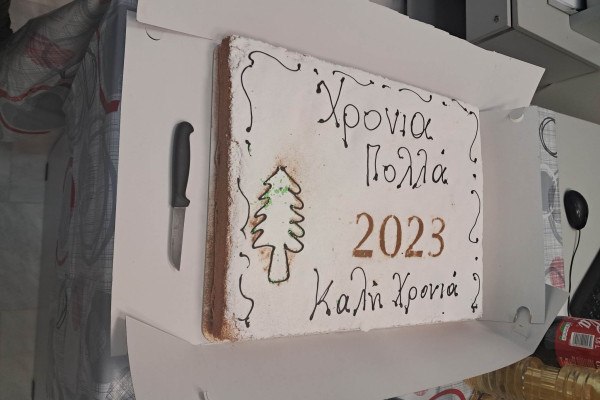 Χρονια
Πολλά
2023
Καλή Χρονιά